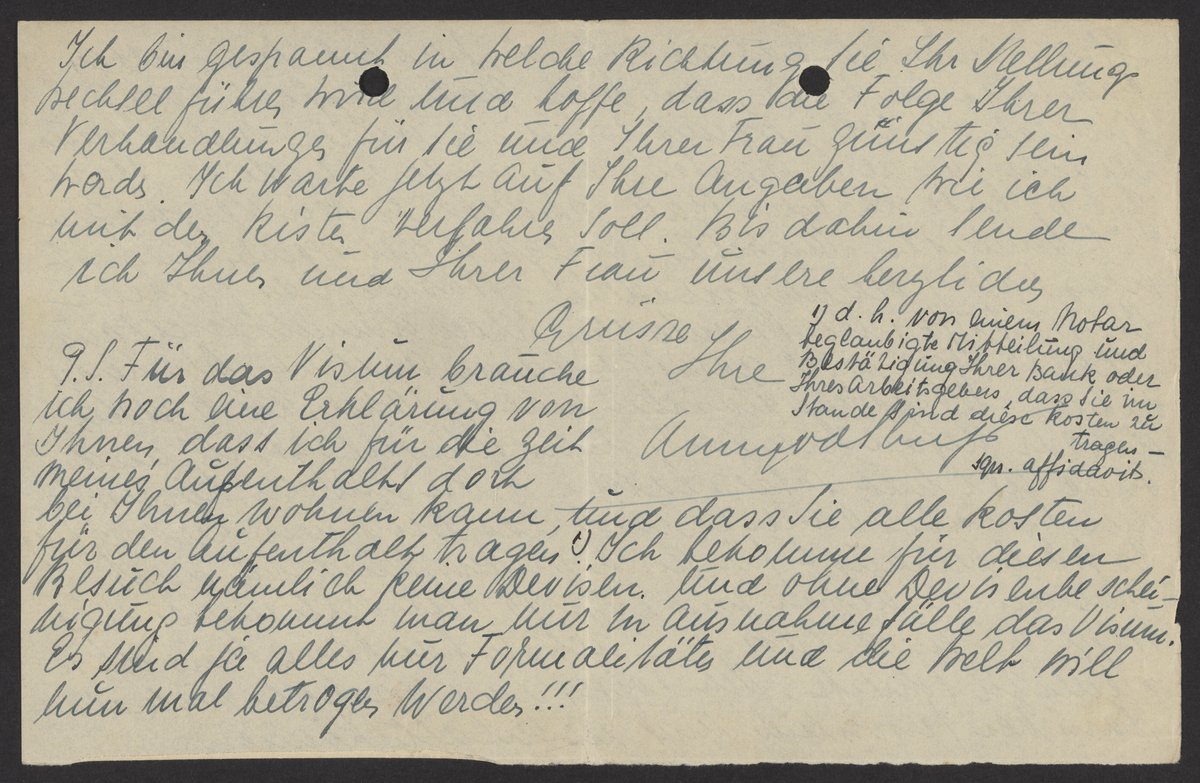 Ich bin gespannt in welche Richtung Sie Ihr Stellungs
wechsel führen wird und hoffe, dass die Folge Ihrer
Verhandlungen für Sie und Ihrer Frau günstig sein
werden. Ich warte jetzt auf Ihre Angaben wie ich
mit den Kisten verfahren soll. Bis dahin sende
ich Ihnen und Ihrer Frau unsere herzlichen
Grüsse
Ihre
P.S. Für das Visum brauche
ich noch eine Erklärung von
Ihnen, dass ich für die Zeit
meines Aufenthalts dort
bei Ihnen wohnen kann, und dass Sie alle Kosten
für den Aufenthalt tragen 1) Ich bekomme für diesen
Besuch nämlich keine Devisen. Und ohne Devisenbeschei-
nigung bekommt man nur in Ausnahmefälle das Visum.
Es sind ja alles nur Formalitäten und die Welt will
nun mal betrogen werden!!!
1) d. h. von einem Notar
beglaubigte Mitteilung und
Bestätigung Ihrer Bank oder
Ihres Arbeitgebers, dass Sie im
Stande sind diese Kosten zu
tragen —
sgn. affidavit.